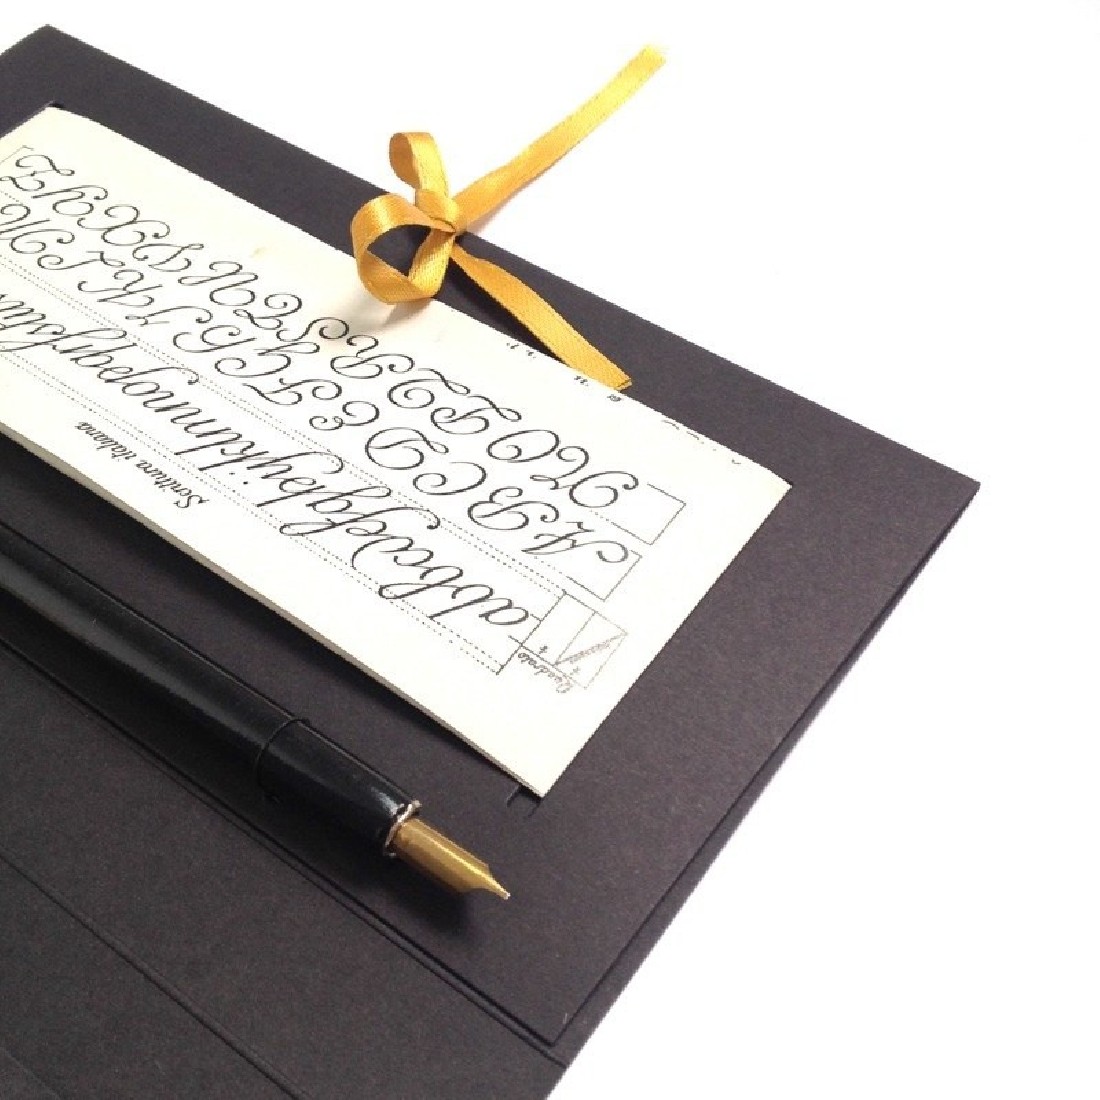 Scrittura italiana
Quadrato
abcdefghijklmnopqrstu
A B C D E F G H I K L M
N O P Q R S T U V X Y Z